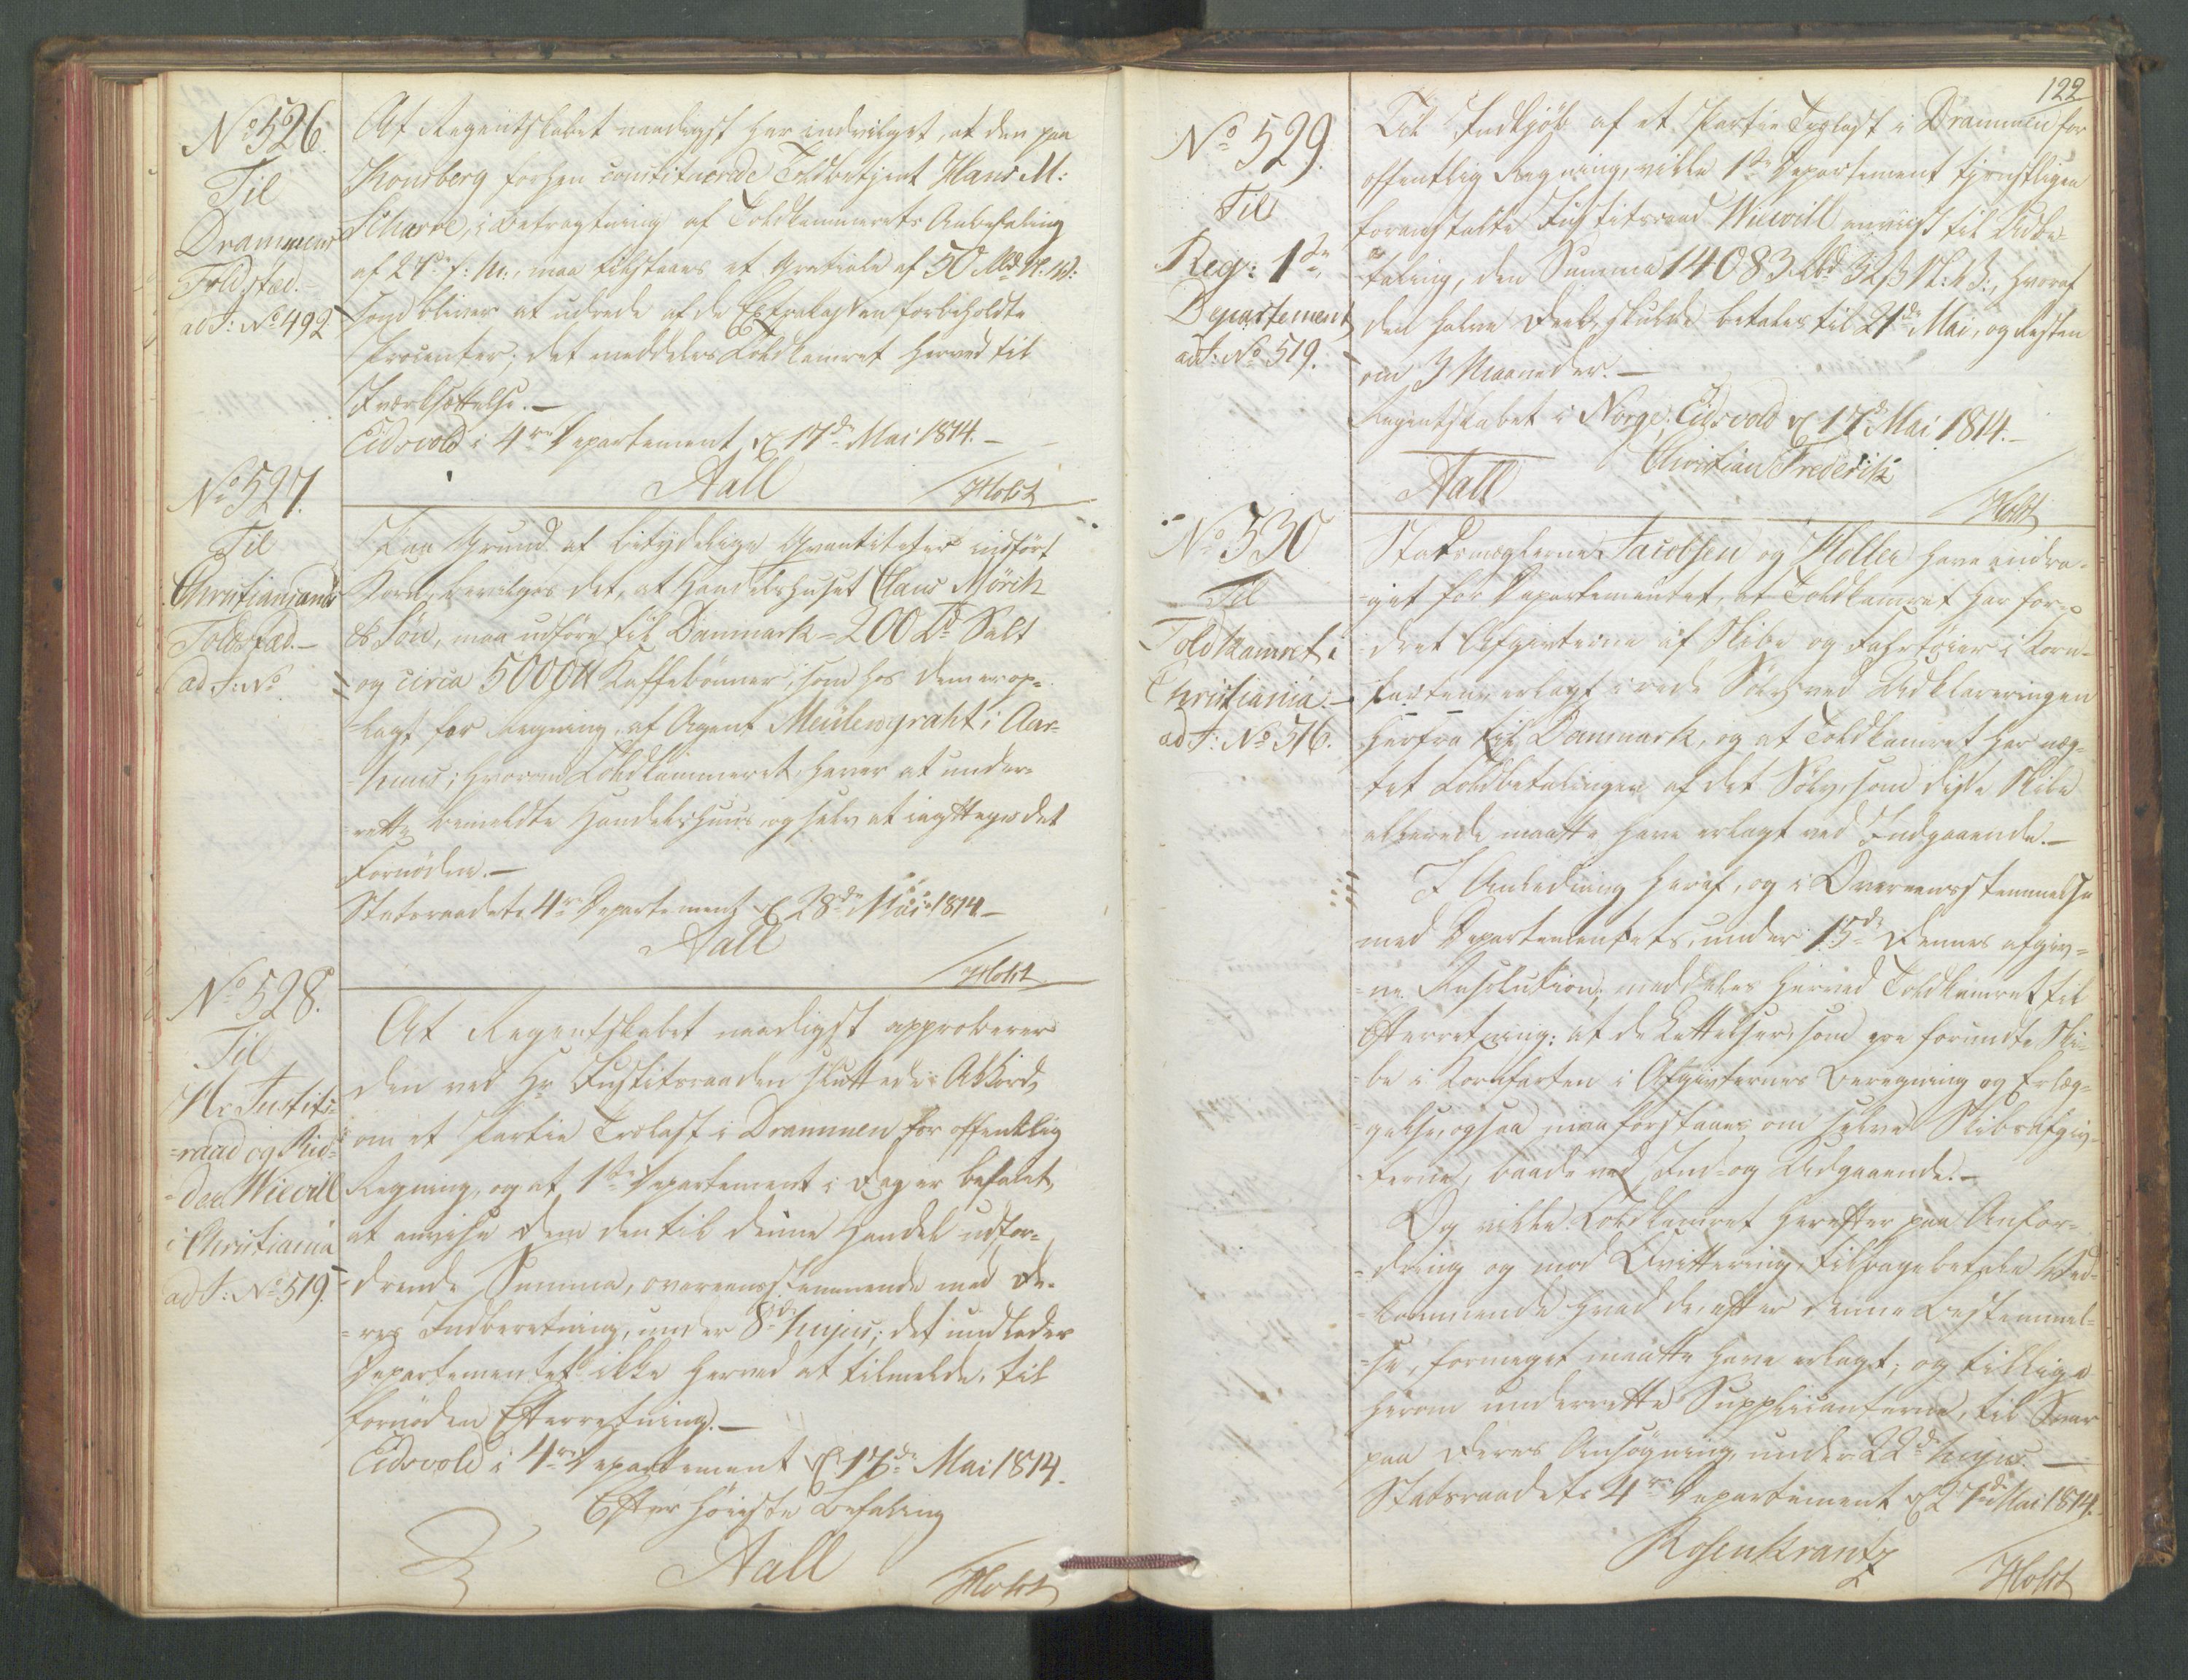 No 526.
Til
Drammens
Toldsted.
ad J: No 492
At Regentskabet naadigst har indvilget, at den paa
Kongsberg forhen constituerede Toldbetjent Hans M:
Scharre, i Betragtning af Toldkammerets Anbefaling
af 27de f: M:, maa tilstaaes et Gratiale af 50 Rbd N: V:
som bliver at udrede af de Extrakassen forbeholdte
Procenter; det meddeles Toldkamret herved til
Iværksættelse.—
Eidsvold i 4re Departement, d 17de Mai 1814.—
Aall
Holst
No 527.
Til
Christiansands
Toldsted.—
ad J: No
Paa Grund af betydelige Qvantiteter indført
Korn, bevilges det, at Handelshuset Claus Mörch
& Søn, maa udføre til Danmark 200 Td Salt
og circa 5000 ℔ Kaffebønner, som hos dem er op-
-lagt for Regning af Agent Meülengraht i Aar-
-huus; hvorom Toldkammeret haver at under-
rette bemeldte Handelshuus og selv at iagttage det
Fornødne.—
Statsraadets 4re Departement d 28de Mai 1814—
Aall
Holst
No 528.
Til
Hr Justits-
-raad og Rid-
-der Wiewill
i Christiania
ad J: No 519.
At Regentskabet naadigst approberer
den ved Hr Justitsraaden sluttede Akkord,
om et Partie Trælast i Drammen for offentlig
Regning, og at 1ste Departement i Dag er befalet,
at anvise Dem den til denne Handel udfor-
-drende Summa, overeensstemmende med De-
-res Indberetning, under 8de hujus; det undlader
Departementet ikke herved at tilmelde, til
fornøden Efterretning.—
Eidsvold i 4re Departement d 17de Mai 1814.
Efter høieste Befaling
Aall
Holst
122
No 529.
Til
Reg: 1ste
Departement
ad J: No 519.
Til Indkjøb af et Partie Trælast i Drammen for
offentlig Regning, ville 1ste Departement tjenstligen
foranstalte Justitsraad Wiewill anviist til Udbe-
taling, den Summa 14083 Rbd 32 β N: V:, hvoraf
den halve Deel skulde betales til 21de Mai, og Resten
om 3 Maaneder.—
Regentskabet i Norge, Eidsvold d 17de Mai 1814.—
Christian Frederik
Aall
Holst
No 530
Til
Toldkamret i
Christiania.—
ad J: No 516.
Stadsmæglerne Jacobsen og Møller have andra-
-get for Departementet, at Toldkamret har for-
-dret Afgivterne af Skibe og Fartøier i Korn-
-farten, erlagt i rede Sølv ved Udklareringen
herfra til Danmark, og at Toldkamret har næg-
-tet Tilbagebetalingen af det Sølv, som disse Skibe
allerede maatte have erlagt ved Indgaaende.—
I Anledning heraf, og i Overeensstemmelse
med Departementets, under 15de Dennes afgiv-
-ne Resolution, meddeles herved Toldkamret til
Efterretning: at de Lettelser, som ere forundte Ski-
-be i Kornfarten i Afgivternes Beregning og Erlæg-
-gelse, ogsaa maa forstaaes om selve Skibsafgiv-
-terne, baade ved Ind- og Udgaaende.—
Og ville Toldkamret herefter paa Anfor-
-dring og mod Qvittering, tilbagebetale Ved-
-kommende hvad de, efter denne Bestemmel-
-se, formeget maatte have erlagt; og tillige
herom underrette Supplicanterne, til Svar
paa Deres Ansøgning, under 22de hujus.—
Statsraadets 4re Departement d 27de Mai 1814.
Rosenkrantz
Holst